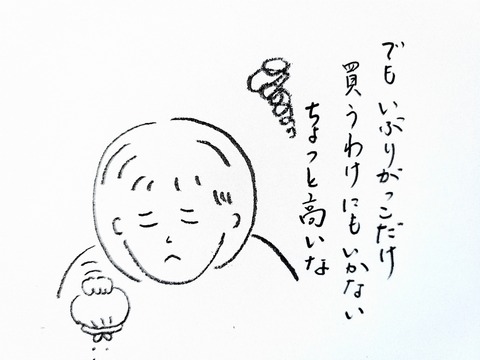 でもいぶりがっこだけ
買うわけにもいかない
ちょっと高いな